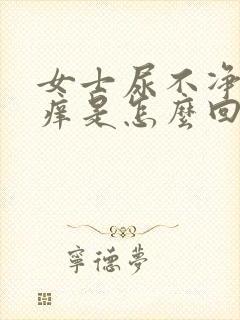 女士尿不净
痒是怎麽回
寧德夢